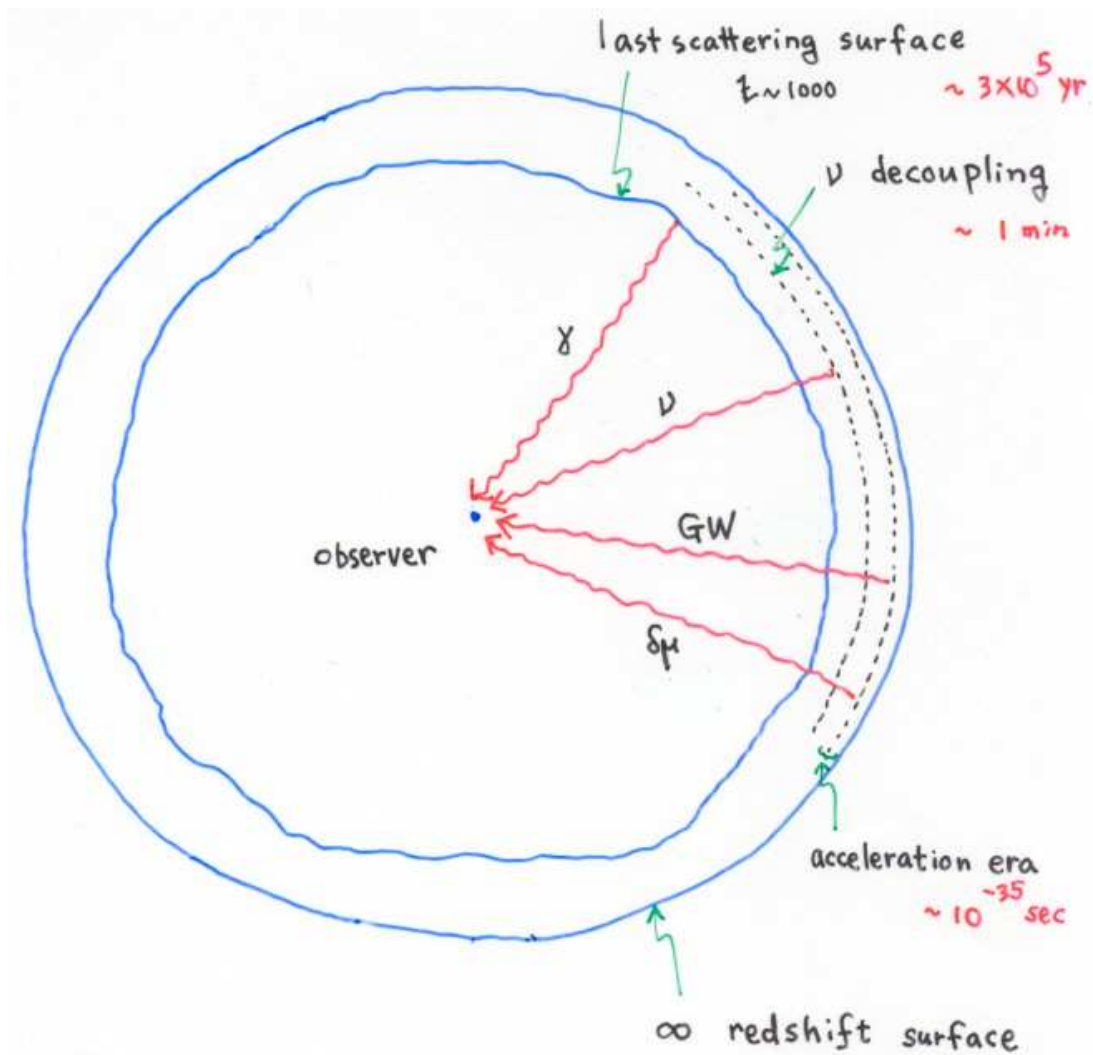 last scattering surface
z ~ 1000 ~ 3×10⁵ yr
ν decoupling
~ 1 min
γ
ν
GW
observer
δμ
acceleration era
~ 10⁻³⁵ sec
∞ redshift surface